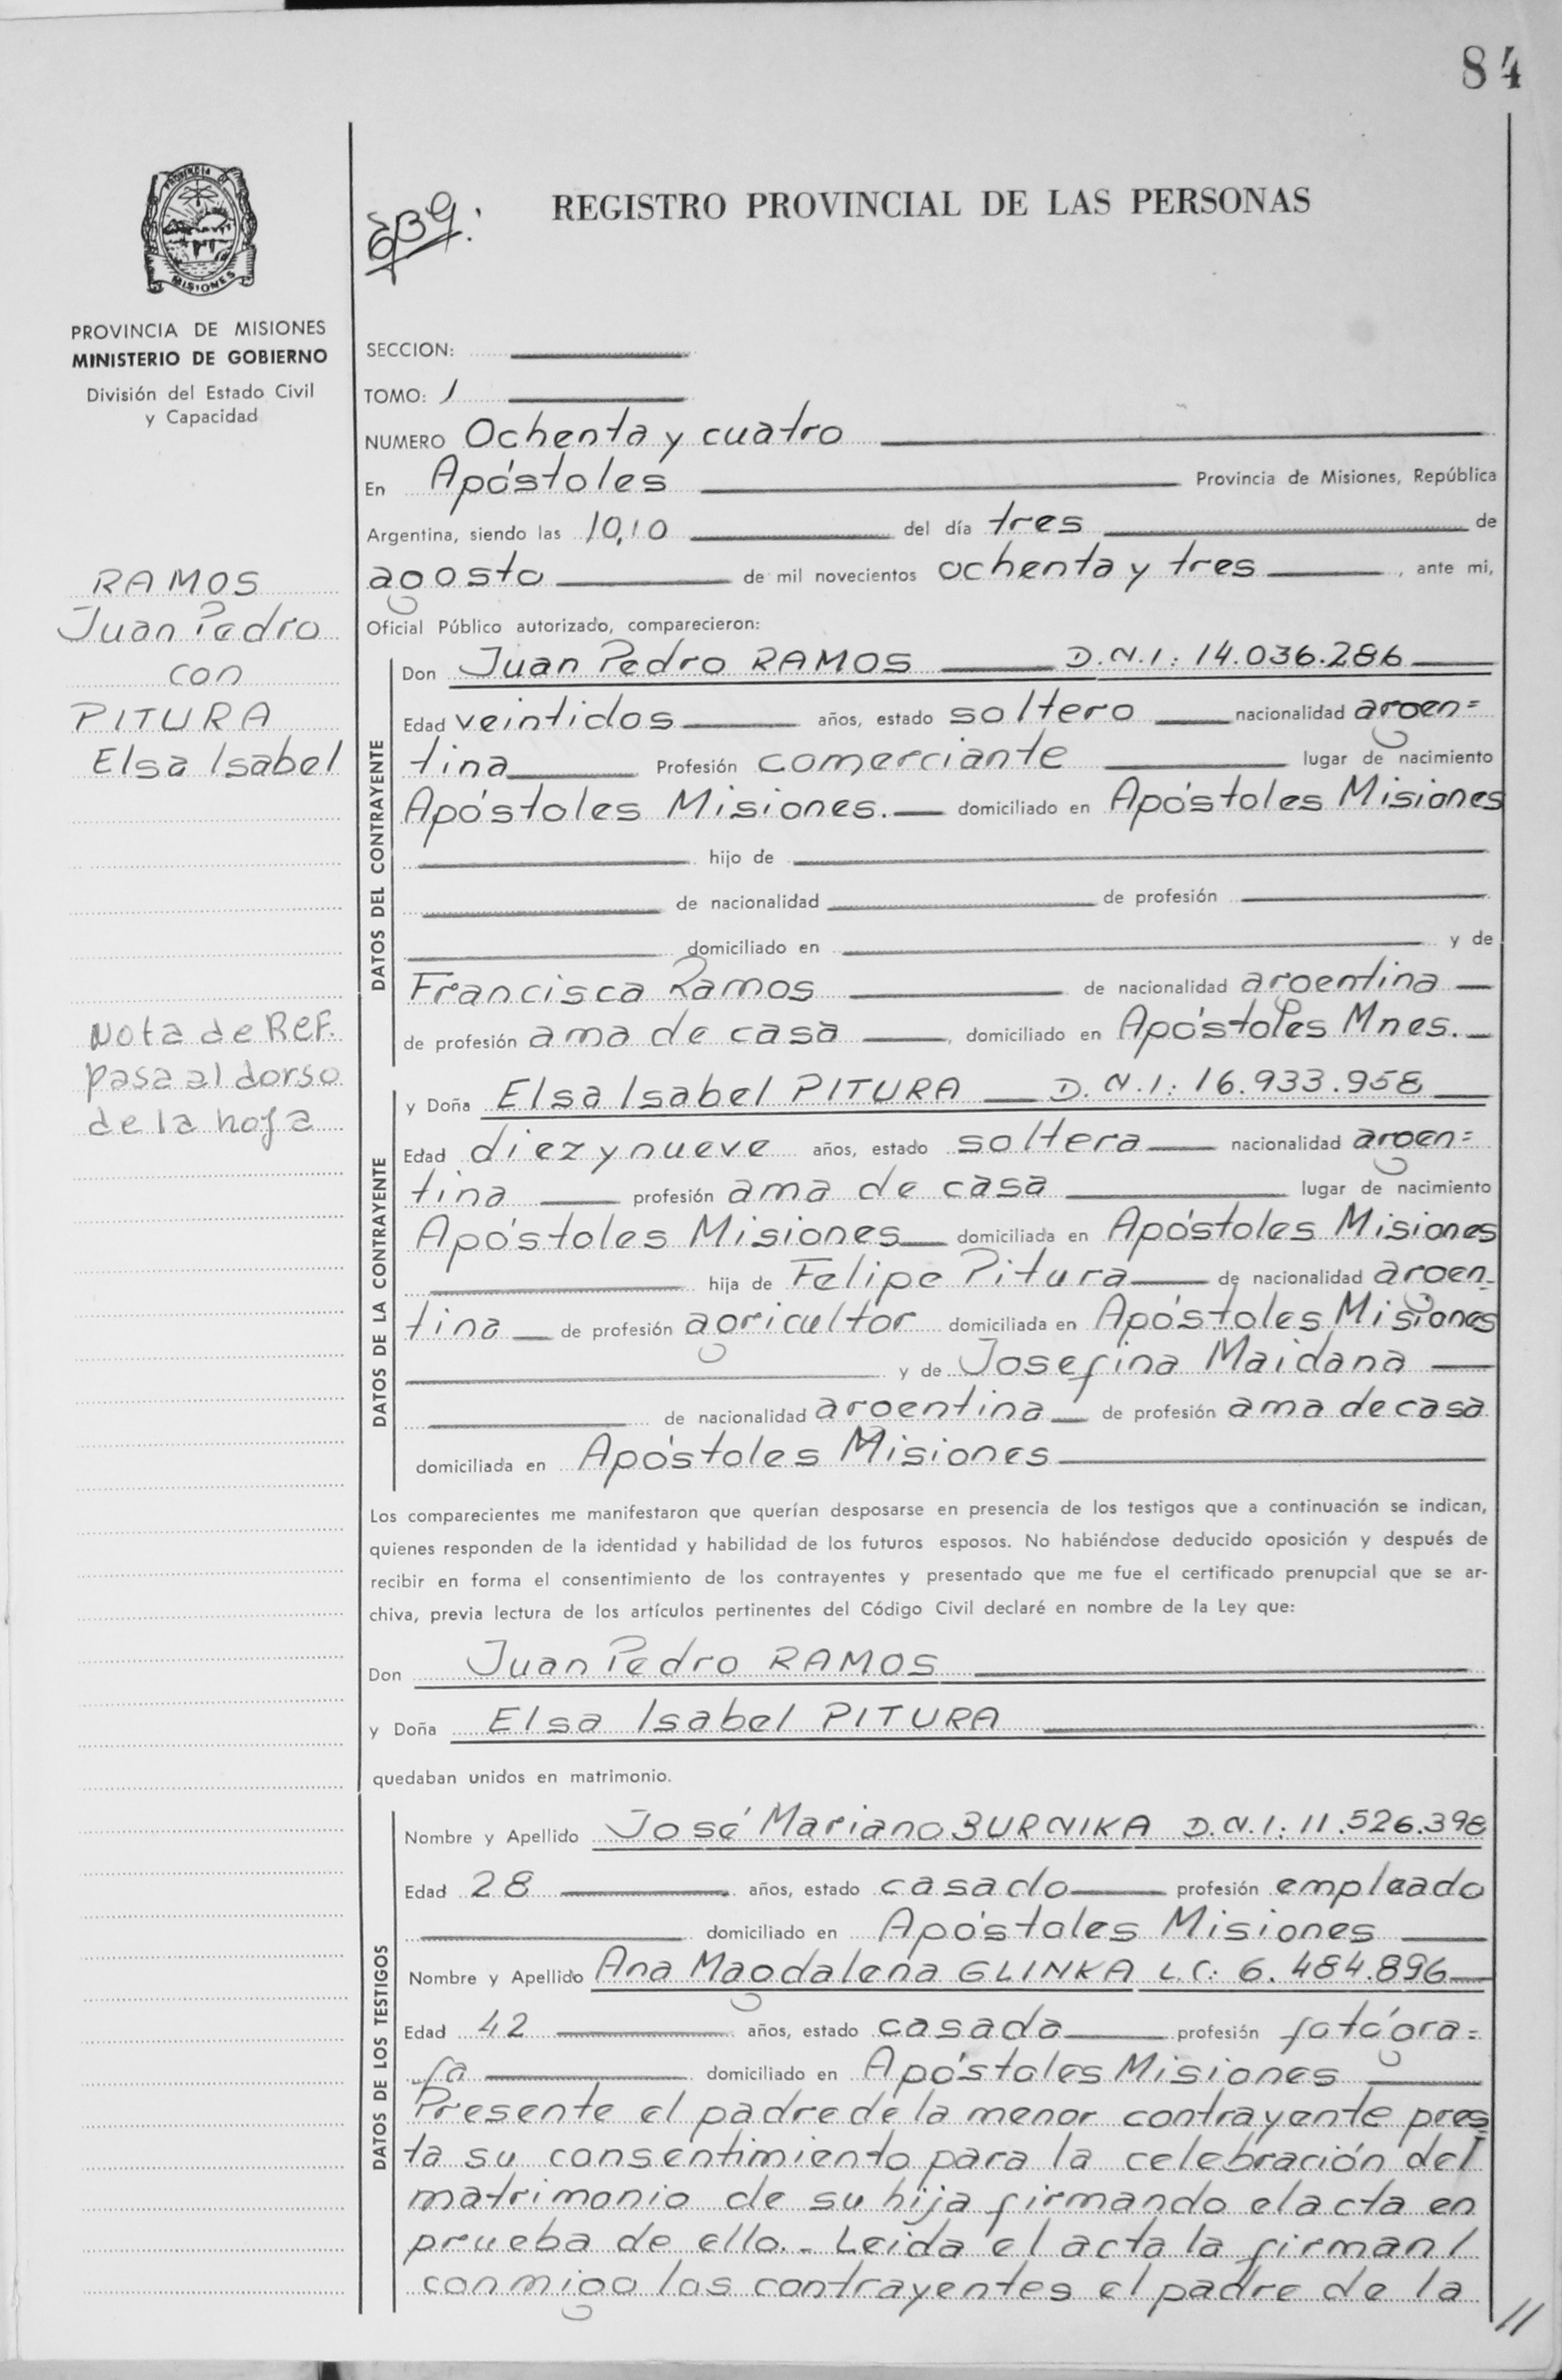 84
PROVINCIA DE
MISIONES
PROVINCIA DE MISIONES
MINISTERIO DE GOBIERNO
División del Estado Civil
y Capacidad
RAMOS
Juan Pedro
con
PITURA
Elsa Isabel
Nota de Ref.
pasa al dorso
de la hoja
REGISTRO PROVINCIAL DE LAS PERSONAS
SECCION:
TOMO: 1
NUMERO Ochenta y cuatro
En Apóstoles Provincia de Misiones, República
Argentina, siendo las 10,10 del día tres de
agosto de mil novecientos ochenta y tres, ante mi,
Oficial Público autorizado, comparecieron:
DATOS DEL CONTRAYENTE
Don Juan Pedro RAMOS D.N.I: 14.036.286
Edad veintidos años, estado soltero nacionalidad argen=
tina Profesión comerciante lugar de nacimiento
Apóstoles Misiones. domiciliado en Apóstoles Misiones
hijo de
de nacionalidad de profesión
domiciliado en y de
Francisca Ramos de nacionalidad argentina
de profesión ama de casa, domiciliado en Apóstoles Mnes.
DATOS DE LA CONTRAYENTE
y Doña Elsa Isabel PITURA D.N.I: 16.933.958
Edad diez y nueve años, estado soltera nacionalidad argen=
tina profesión ama de casa lugar de nacimiento
Apóstoles Misiones domiciliada en Apóstoles Misiones
hija de Felipe Pitura de nacionalidad argen-
tina de profesión agricultor domiciliada en Apóstoles Misiones
y de Josefina Maidana
de nacionalidad argentina de profesión ama de casa
domiciliada en Apóstoles Misiones
Los comparecientes me manifestaron que querían desposarse en presencia de los testigos que a continuación se indican,
quienes responden de la identidad y habilidad de los futuros esposos. No habiéndose deducido oposición y después de
recibir en forma el consentimiento de los contrayentes y presentado que me fue el certificado prenupcial que se ar-
chiva, previa lectura de los artículos pertinentes del Código Civil declaré en nombre de la Ley que:
Don Juan Pedro RAMOS
y Doña Elsa Isabel PITURA
quedaban unidos en matrimonio.
DATOS DE LOS TESTIGOS
Nombre y Apellido José Mariano BURNIKA D.N.I: 11.526.398
Edad 28 años, estado casado profesión empleado
domiciliado en Apóstoles Misiones
Nombre y Apellido Ana Magdalena GLINKA L.C: 6.484.896
Edad 42 años, estado casada profesión fotógra=
fa domiciliado en Apóstoles Misiones
Presente el padre de la menor contrayente pres
ta su consentimiento para la celebración del
matrimonio de su hija firmando el acta en
prueba de ello.- Leida el acta la firman/
conmigo los contrayentes el padre de la
//